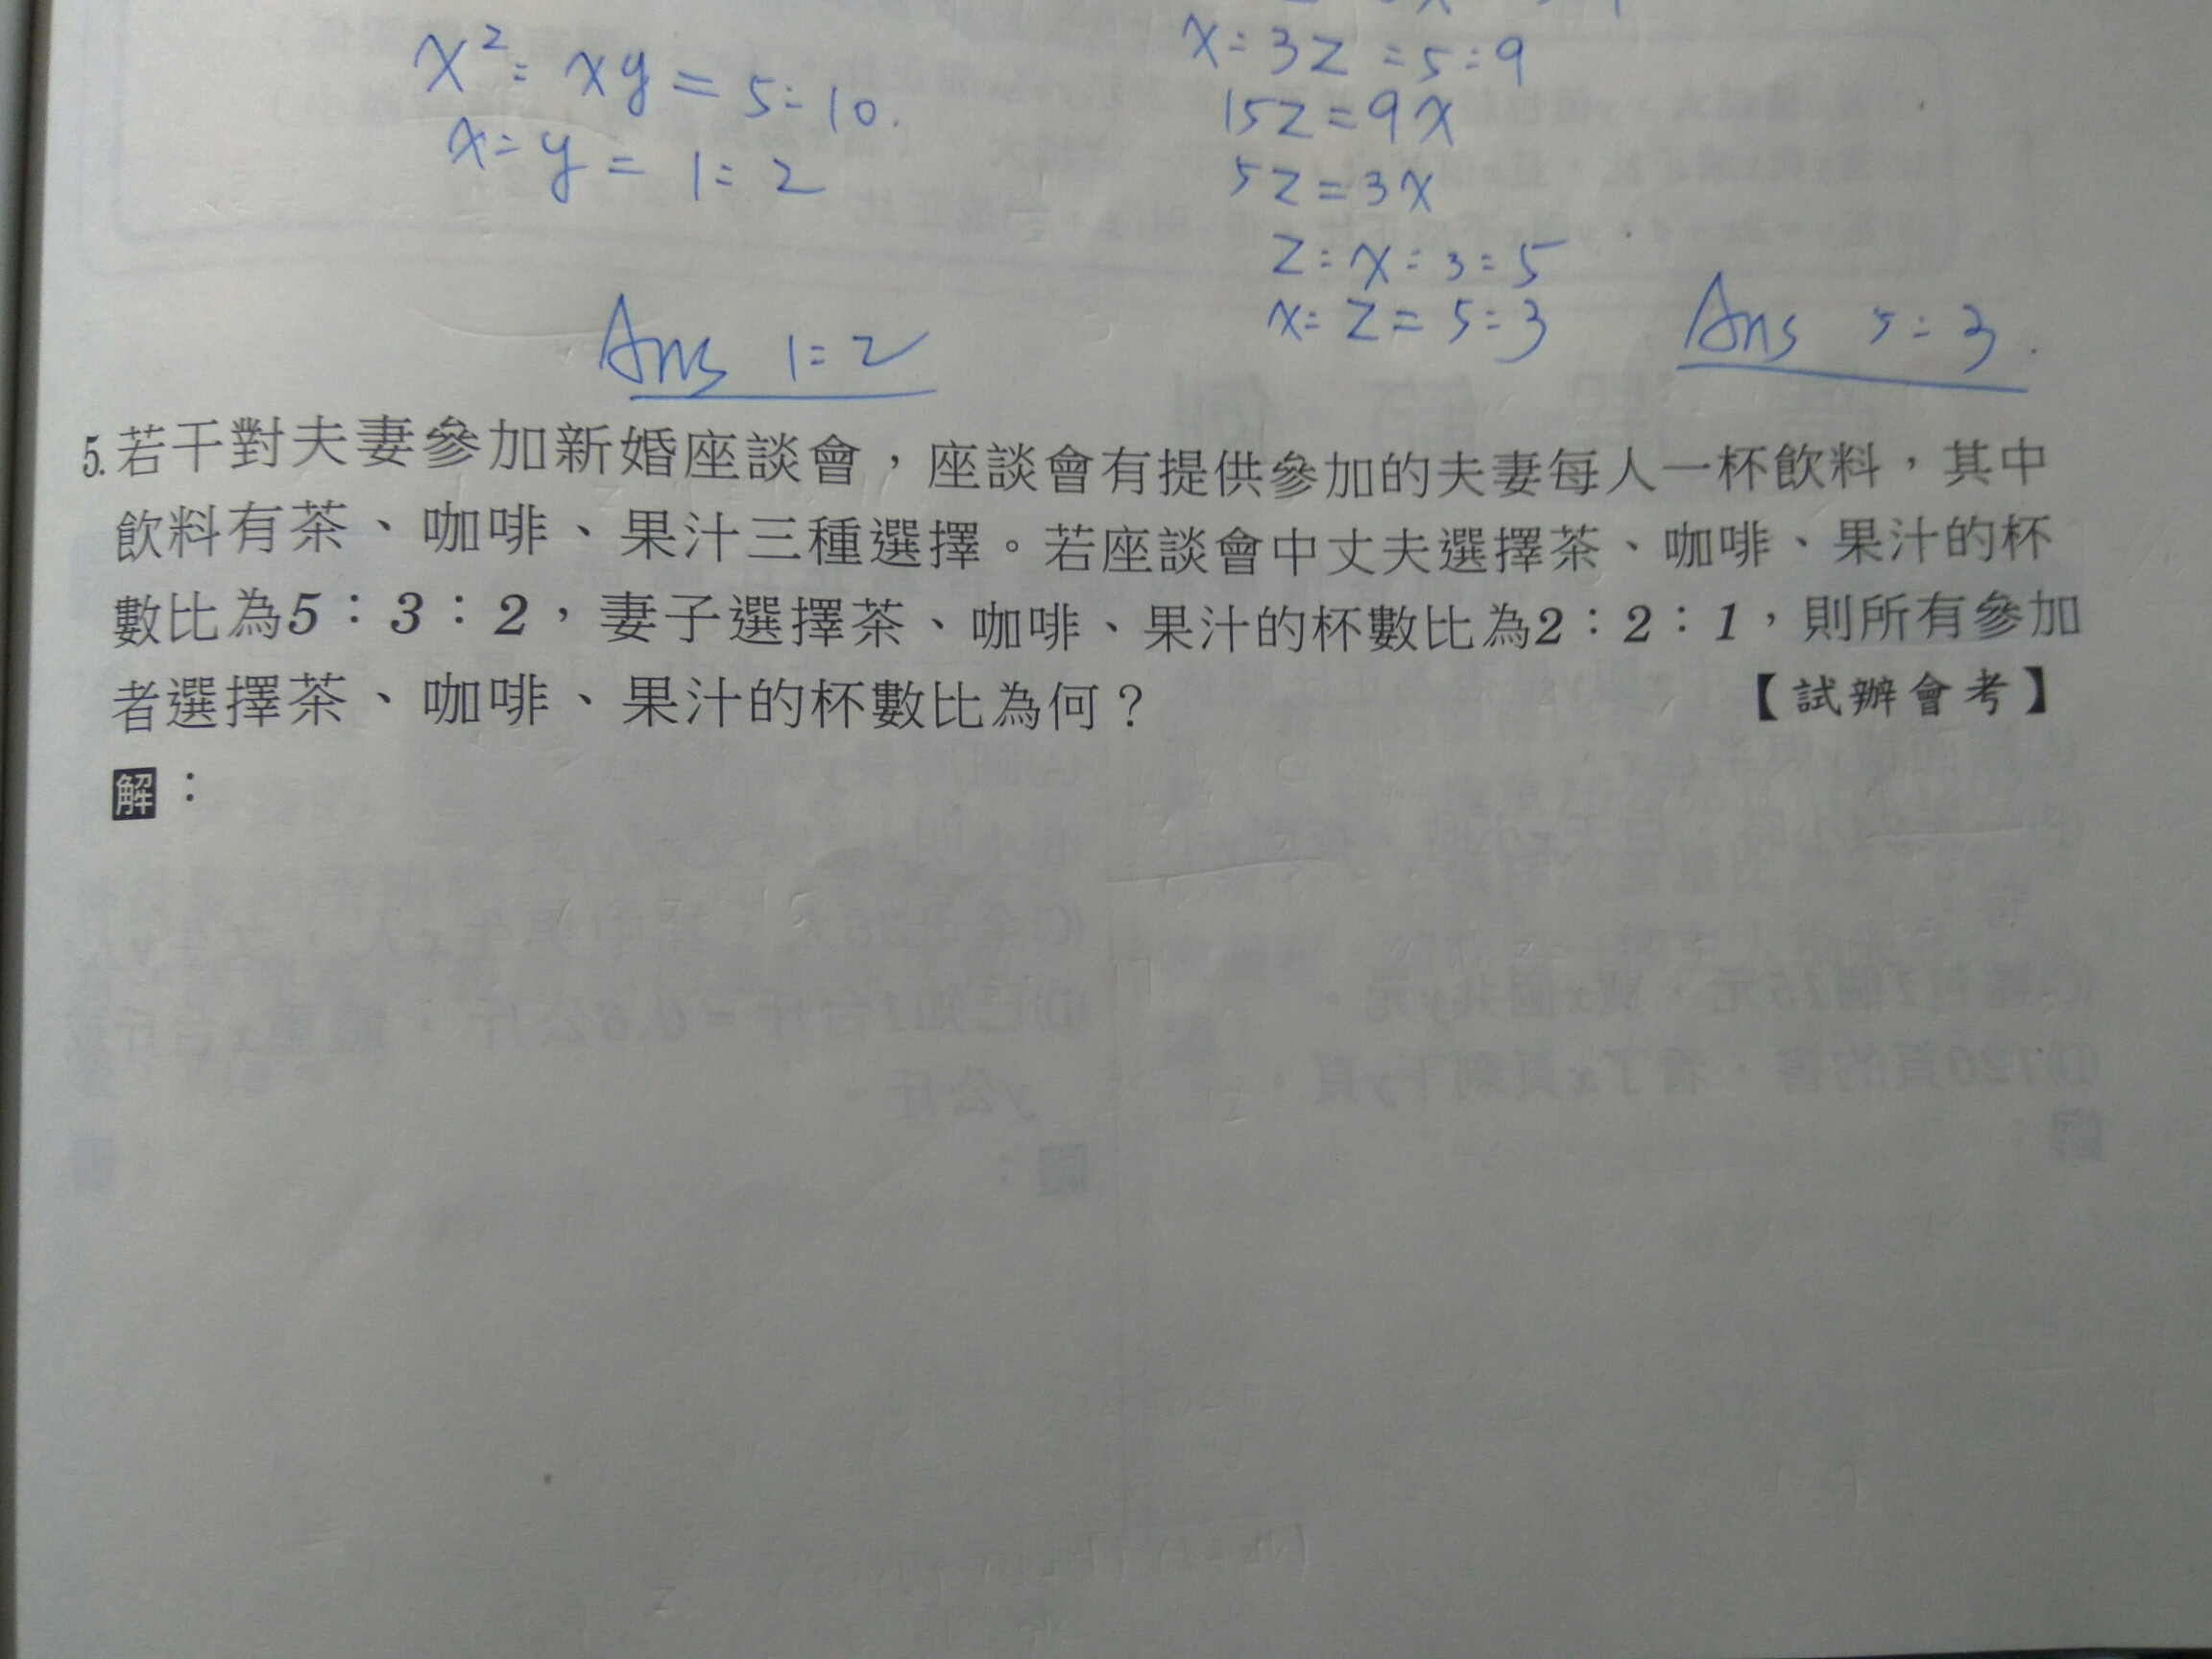 x²:xy=5:10.
x:y=1:2
Ans 1:2
x:3z=5:9
15z=9x
5z=3x
z:x=3:5
x:z=5:3
Ans 5:3.
5.若干對夫妻參加新婚座談會，座談會有提供參加的夫妻每人一杯飲料，其中
飲料有茶、咖啡、果汁三種選擇。若座談會中丈夫選擇茶、咖啡、果汁的杯
數比為5：3：2，妻子選擇茶、咖啡、果汁的杯數比為2：2：1，則所有參加
者選擇茶、咖啡、果汁的杯數比為何？
【試辦會考】
解：